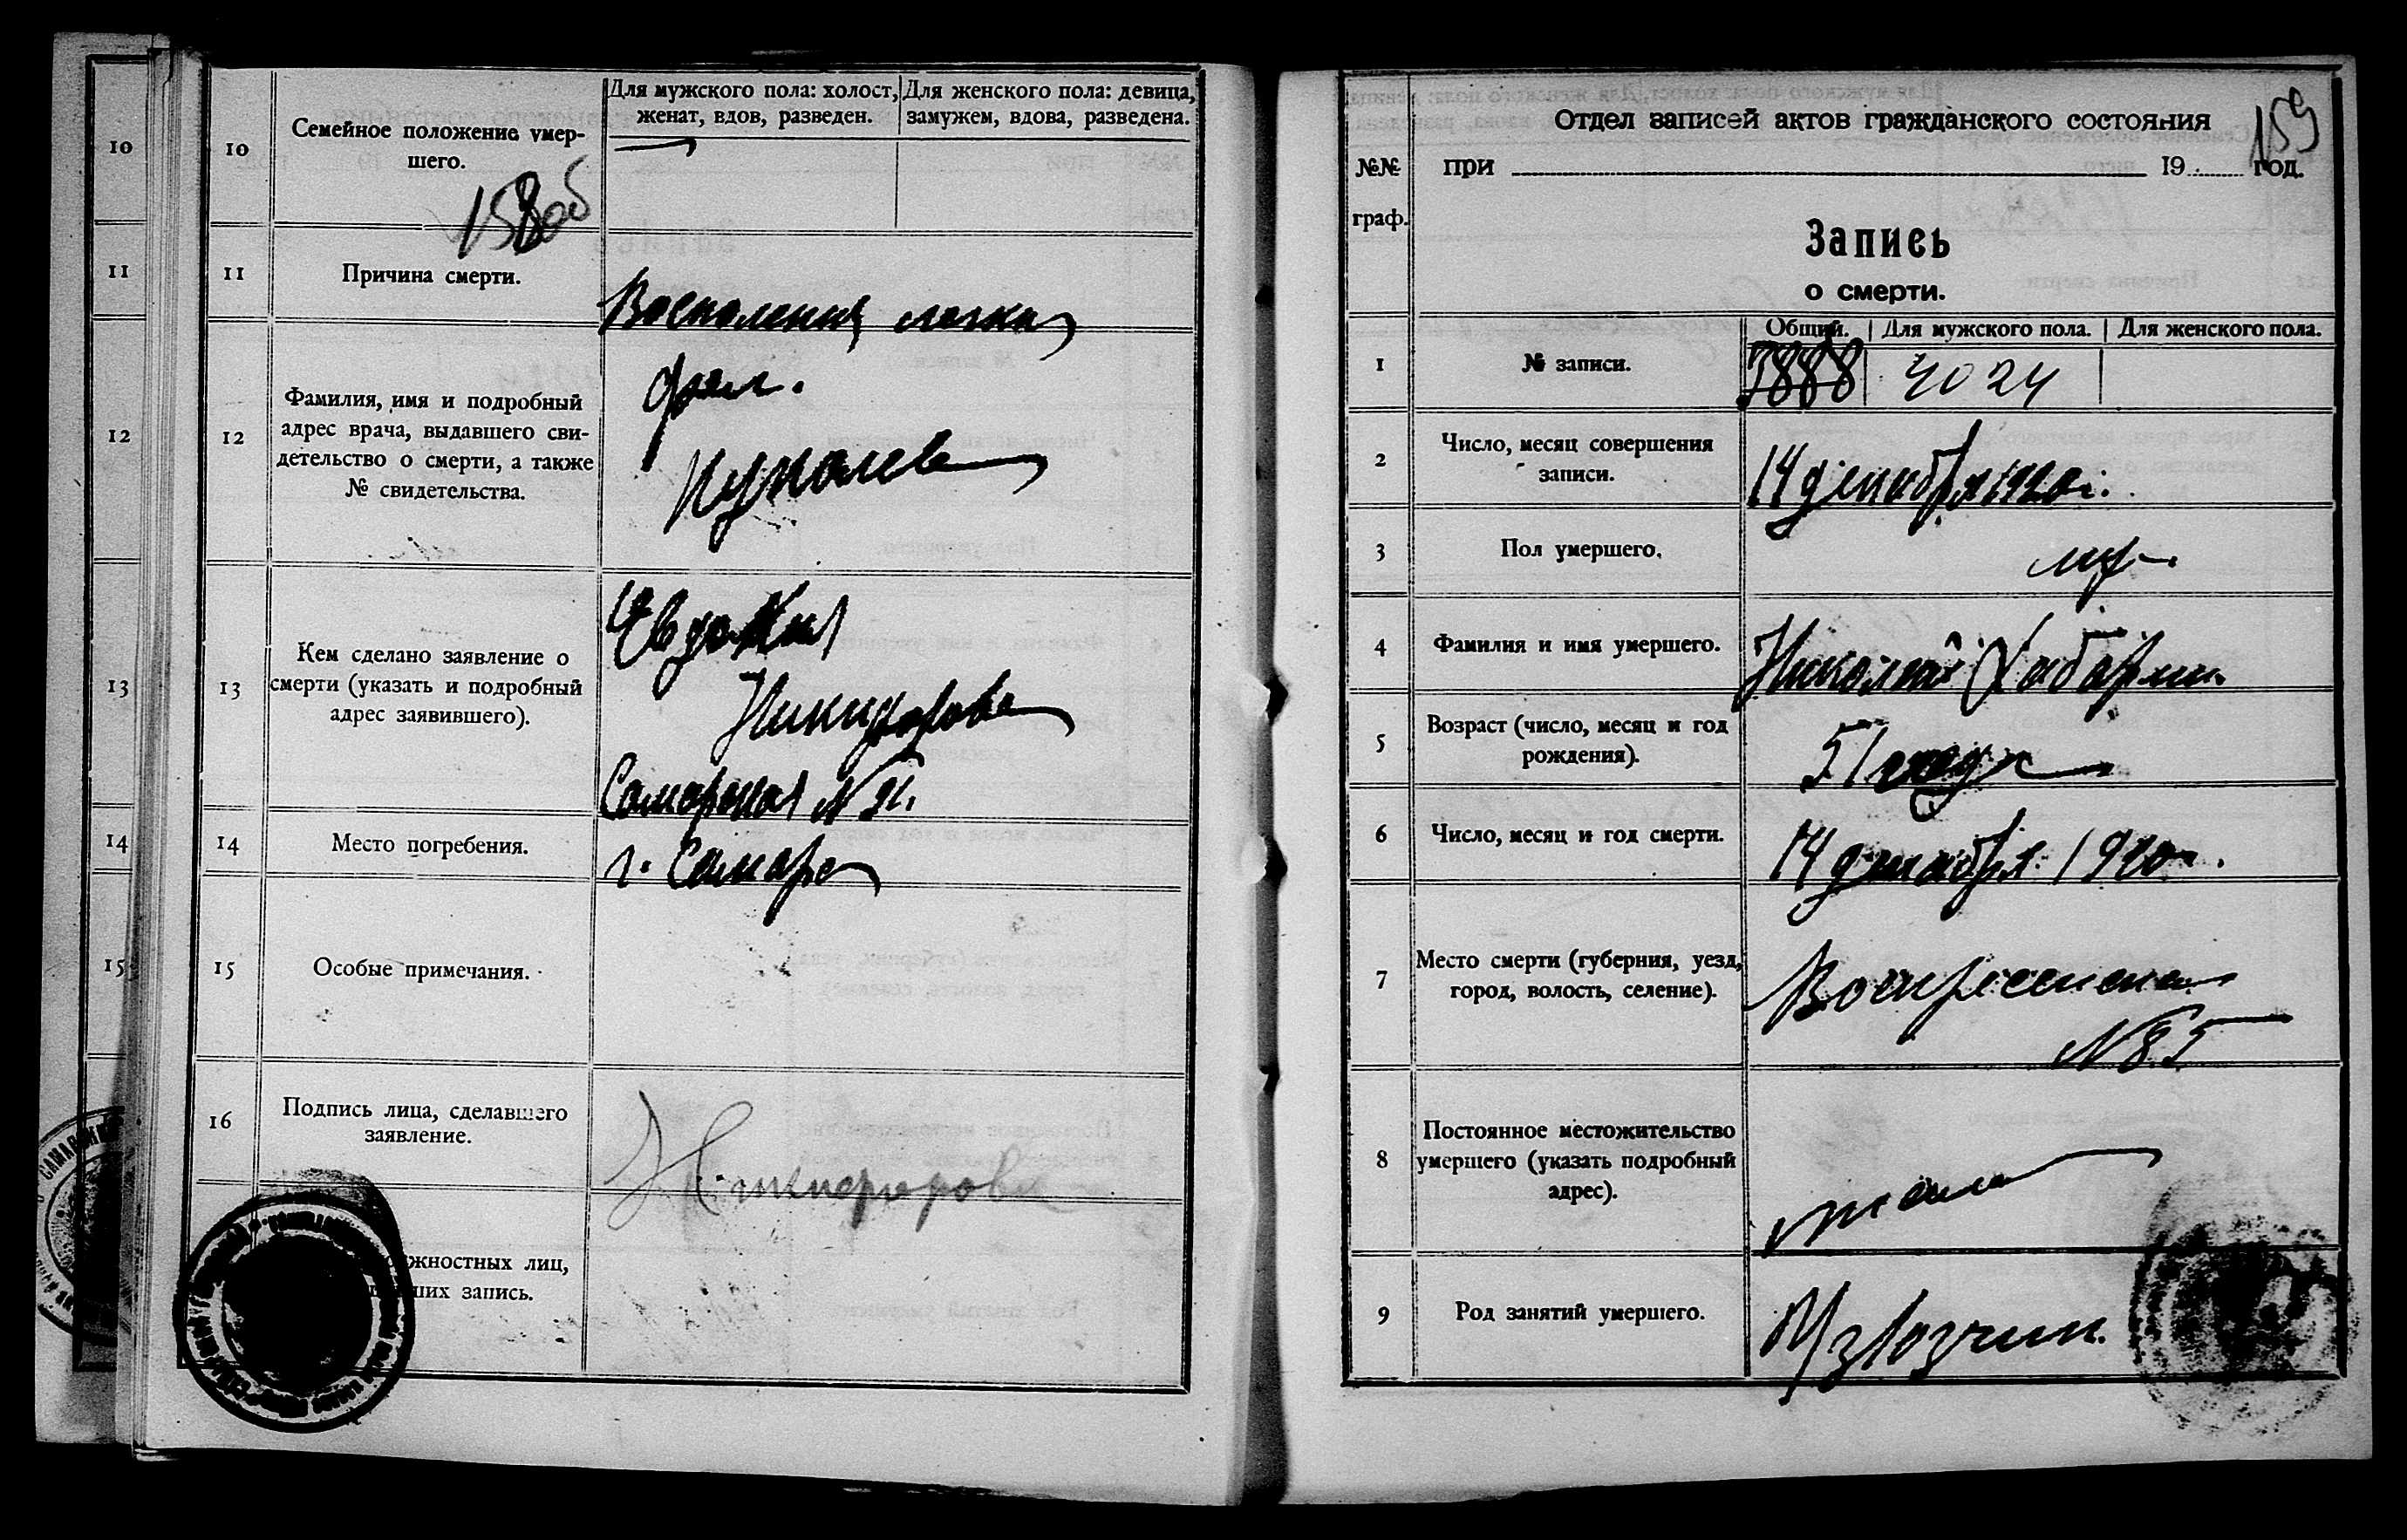 10
11
12
13
14
15
10
Семейное положение умер-
шего.
Для мужского пола: холост,
женат, вдов, разведен.
Для женского пола: девица,
замужем, вдова, разведена.
158об
11
Причина смерти.
Воспаления легких
12
Фамилия, имя и подробный
адрес врача, выдавшего сви-
детельство о смерти, а также
№ свидетельства.
фел.
13
Кем сделано заявление о
смерти (указать и подробный
адрес заявившего).
Евдокия
Никифорова
Самарская №
14
Место погребения.
г. Самара
15
Особые примечания.
16
Подпись лица, сделавшего
заявление.
Никифорова
жностных лиц,
ших запись.
159
Отдел записей актов гражданского состояния
при 19 год.
№№
граф.
Запись
о смерти.
1
№ записи.
Общий.
Для мужского пола.
Для женского пола.
7888
4024
2
Число, месяц совершения
записи.
14 декабря 1920 г.
3
Пол умершего.
муж.
4
Фамилия и имя умершего.
Николай Хабарин.
5
Возраст (число, месяц и год
рождения).
51 года
6
Число, месяц и год смерти.
14 декабря 1920 г.
7
Место смерти (губерния, уезд,
город, волость, селение).
Воскресенская
№ 85
8
Постоянное местожительство
умершего (указать подробный
адрес).
там
9
Род занятий умершего.
Узвозчик.